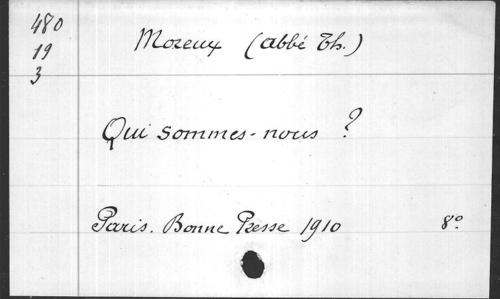 480
19
3
Moreux (abbé Th.)
Qui sommes-nous ?
Paris. Bonne Presse 1910 8°